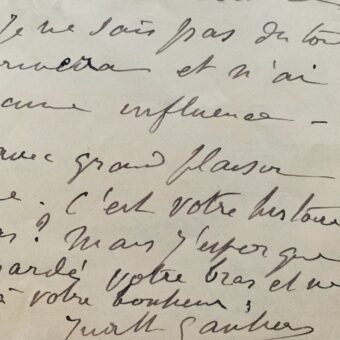 Je ne sais pas du tou
et n'ai
influence -
avec grand plaisir
. C'est votre histoire
? Mais j'espère que
gardé votre bras et ne
à votre bonheur.
Judith Gautier